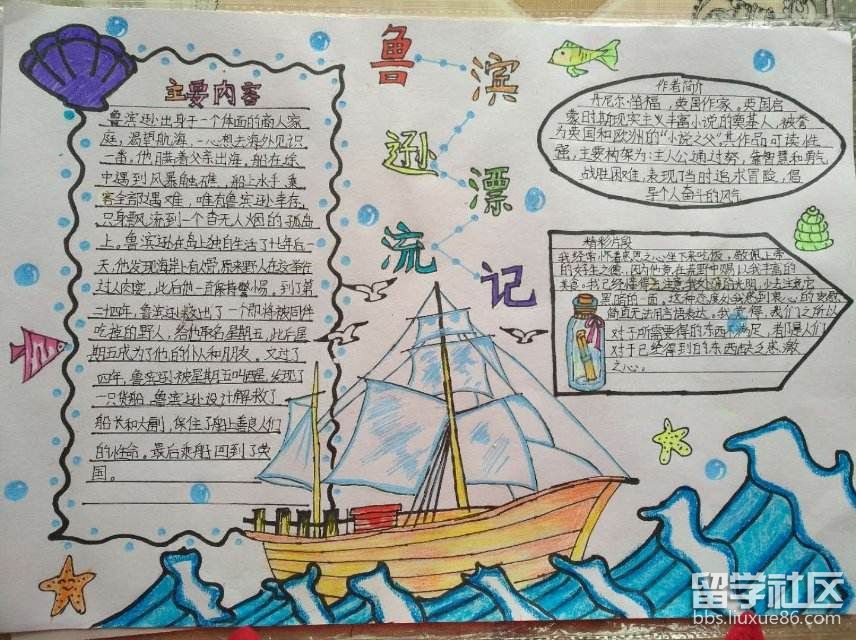 鲁滨逊漂流记
主要内容
鲁滨逊出身于一个体面的商人家
庭，渴望航海，一心想去海外见识
一番。他瞒着父亲出海，船在途
中遇到风暴触礁，船上水手、乘
客全部遇难，唯有鲁滨逊幸存，
只身飘流到一个杳无人烟的孤岛
上。鲁滨逊在岛上独自生活了十七年后一
天，他发现海岸上有人骨，原来野人在这举行
过人肉宴，此后他一直保持警惕。到了第
二十四年，鲁滨逊救出了一个即将被同伴
吃掉的野人，给他取名星期五，此后星
期五成为了他的仆人和朋友。又过了
四年，鲁滨逊被星期五叫醒，发现了
一只货船，鲁滨逊设计解救了
船长和大副，保住了船上善良人们
的性命。最后乘船回到了英
国。
作者简介
丹尼尔·笛福，英国作家。英国启
蒙时期现实主义丰富小说的奠基人，被誉
为英国和欧洲的"小说之父"其作品可读性
强，主要构架为：主人公通过努力，靠智慧和勇气
战胜困难，表现了当时追求冒险，倡
导个人奋斗的风气
精彩片段
我经常怀着感恩之心坐下来吃饭，敬佩上帝
的好生之德，因为他竟在荒野中赐给我丰富的
美食。我已经懂得去注意我处境的光明，少去注意它
黑暗的一面，这种态度让我感到衷心的安慰
简直无法用言语表达。我觉得，我们之所以
对于所需要得的东西不满足，都是人们
对于已经得到的东西缺乏感激
之心。
留学社区
bbs.liuxue86.com